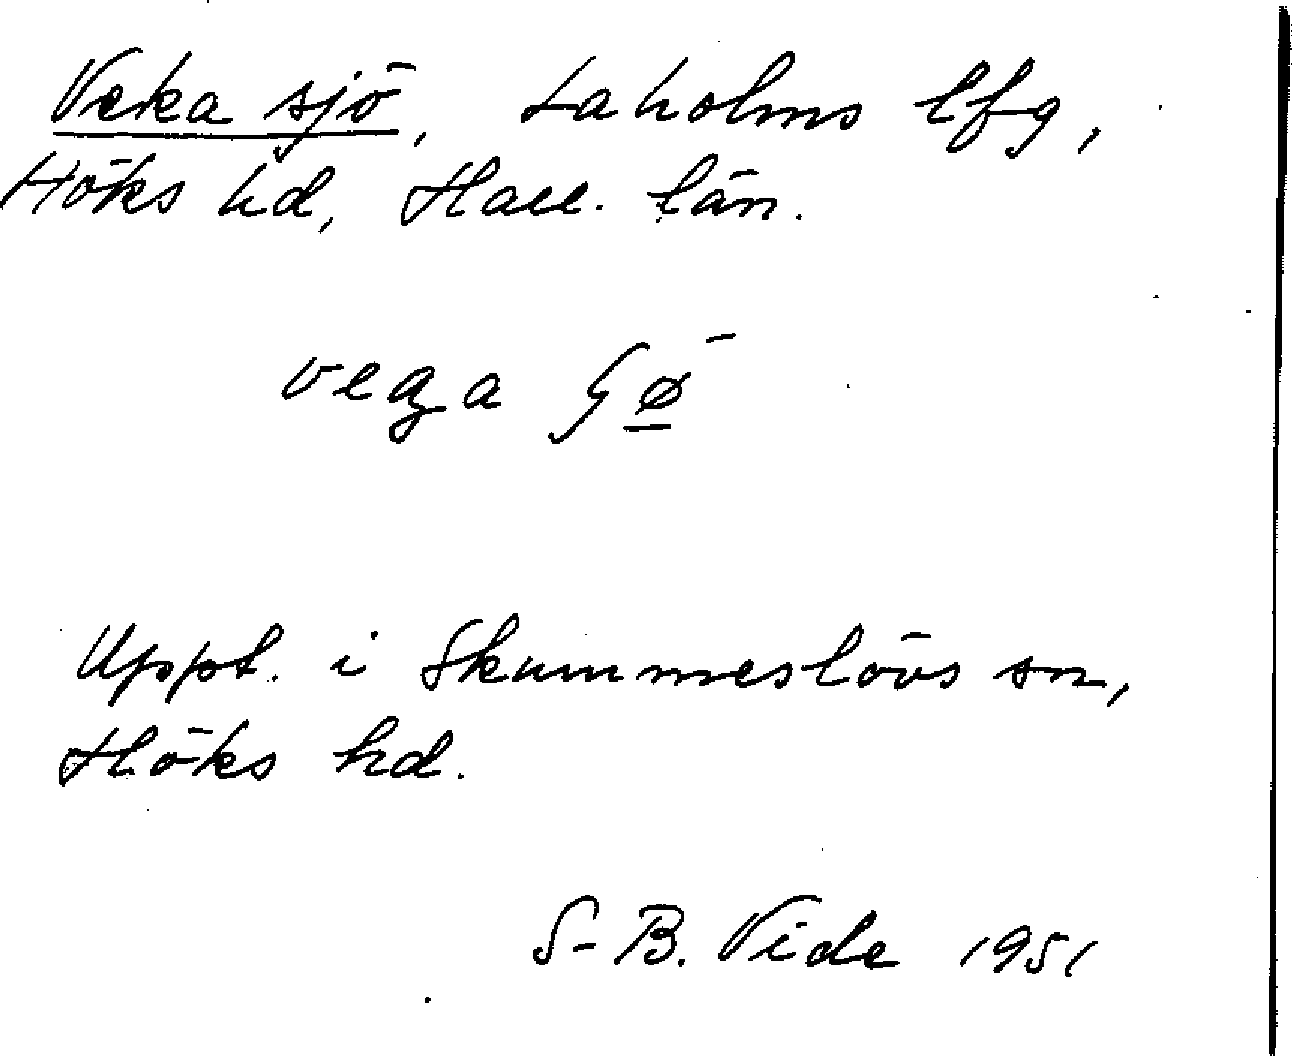 Veka sjö, Laholms lfg,
Höks hd, Hall. län.
vega ʃǿ̱
Uppt. i Skummeslövs sn,
Höks hd.
S-B. Vide 1951